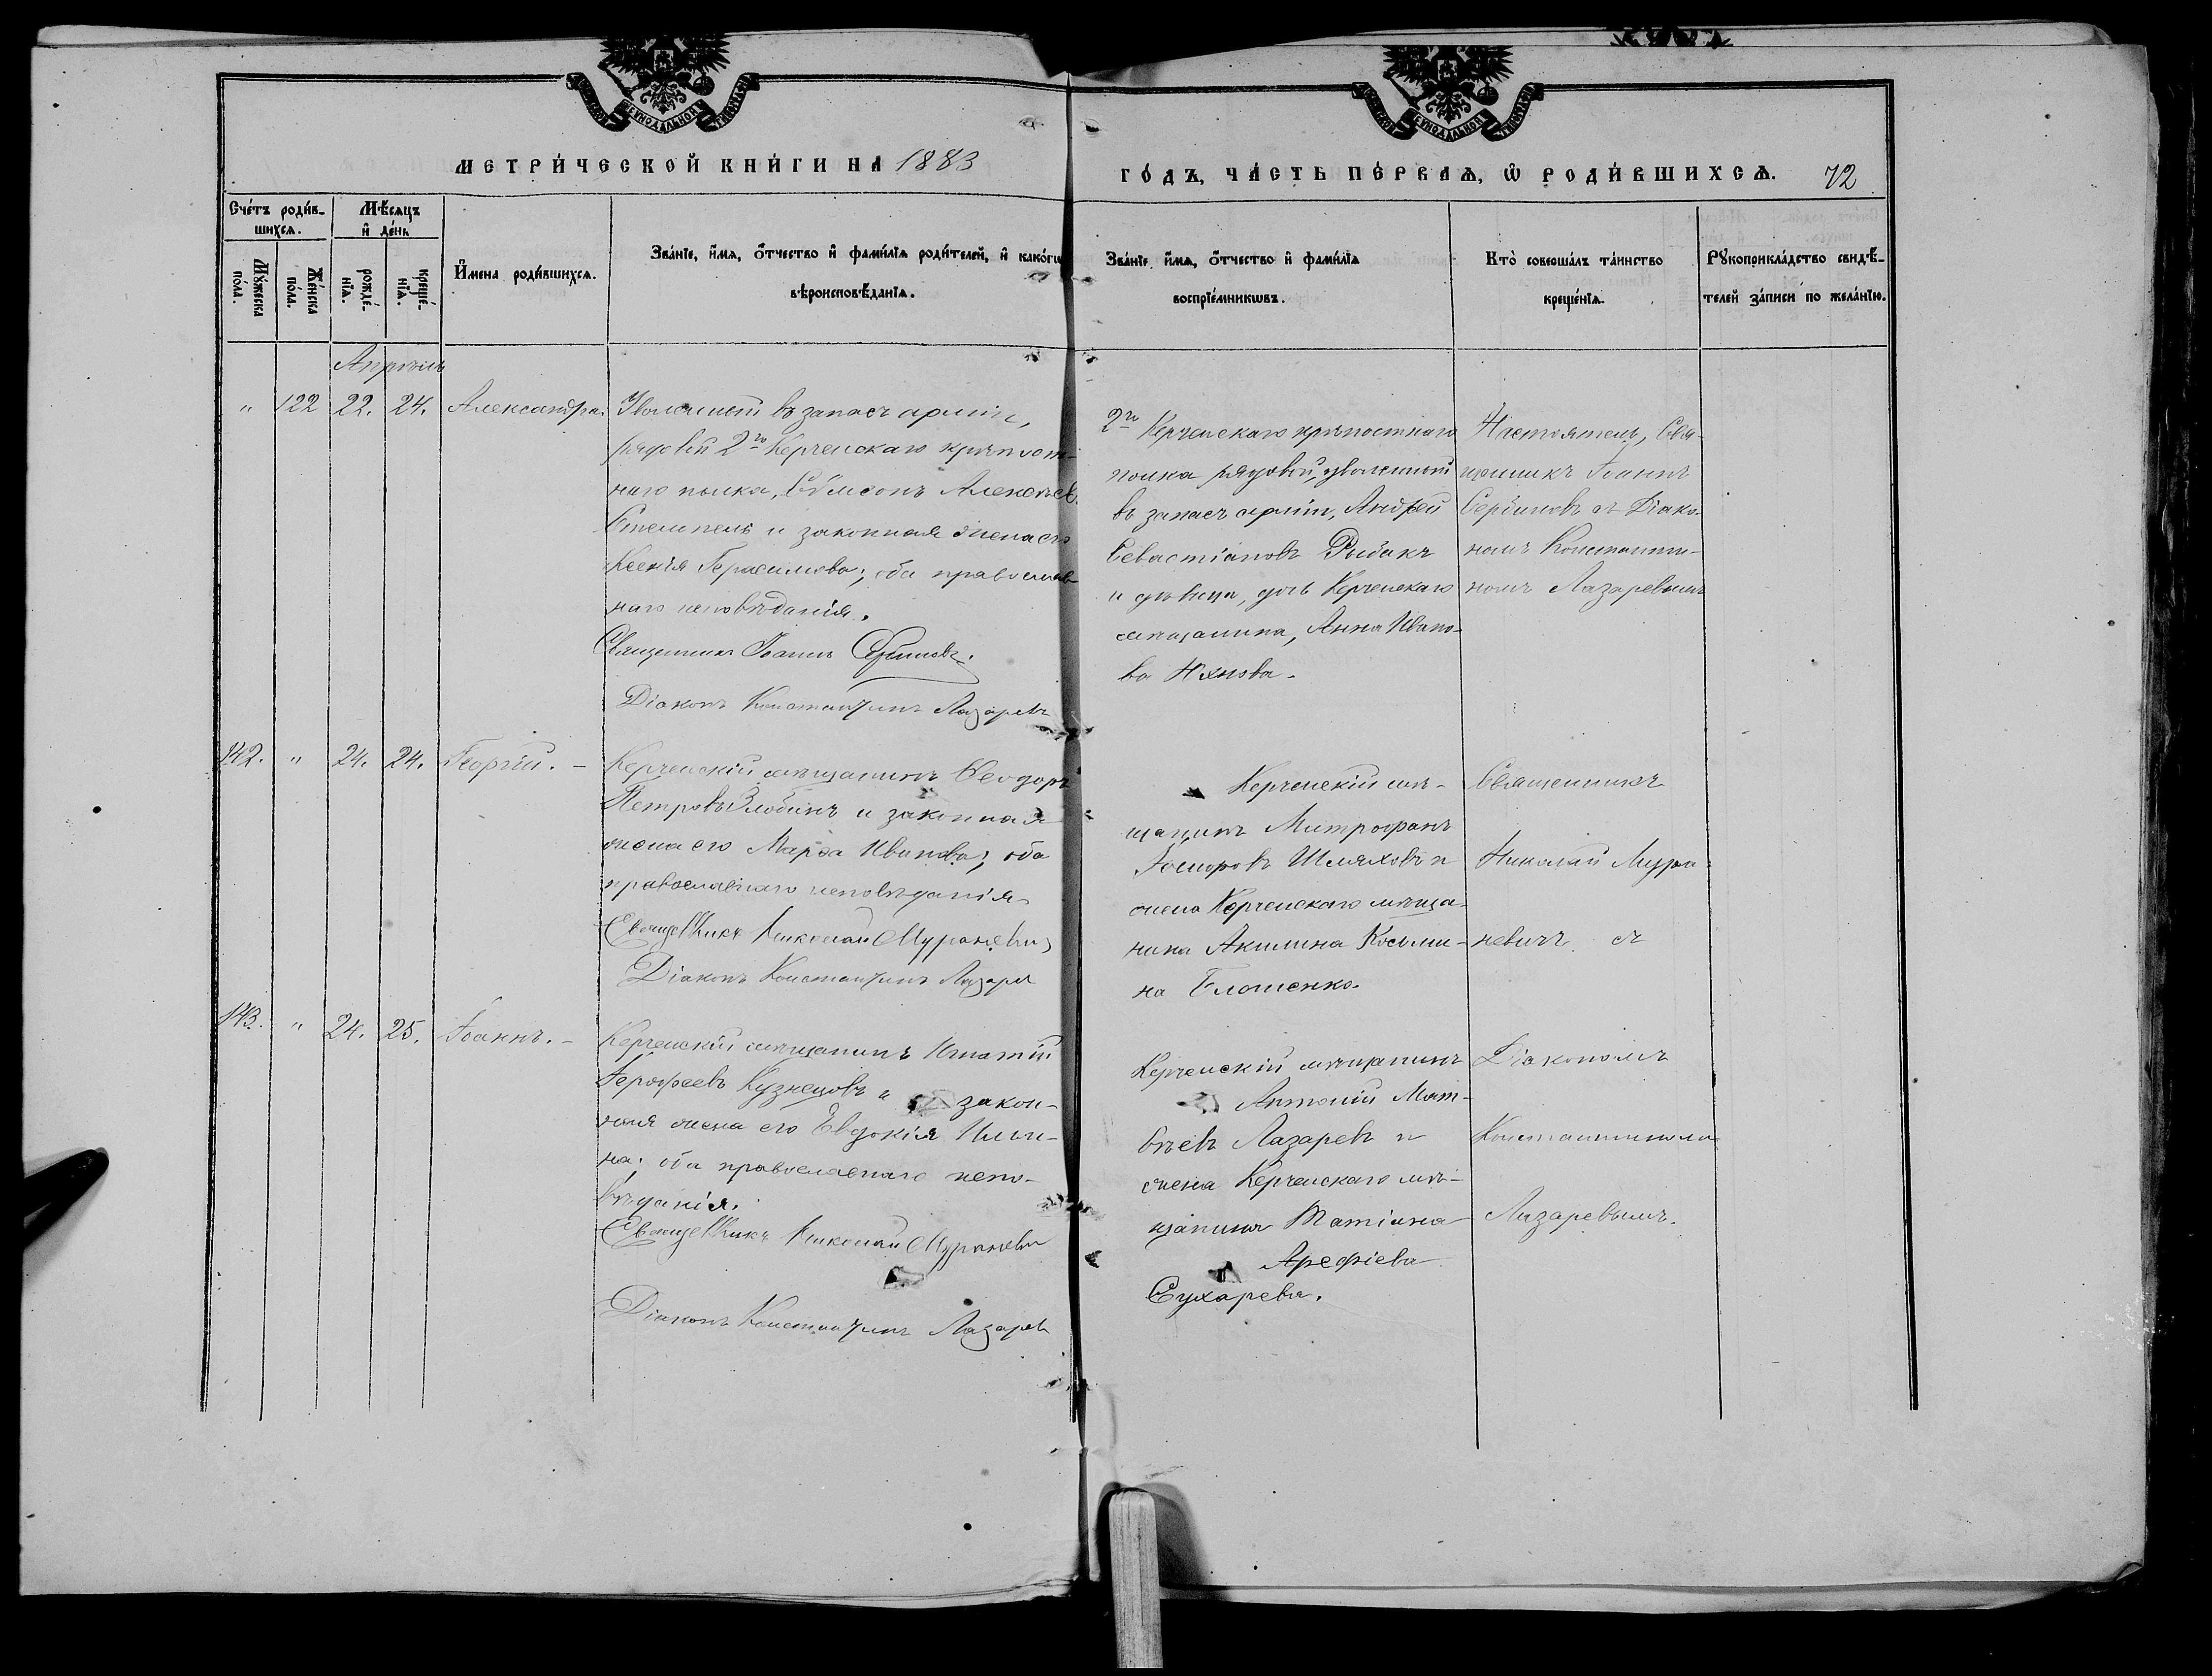 МЕТРИ́ЧЕСКОЙ КНИ́ГИ НА 1883
ГО́ДЪ, ЧА́СТЬ ПЕ́РВАѦ, Ѡ РОДИ́ВШИХСѦ. 72
Сче́тъ роди́в-
шихсѧ.
Мѣ́сяцъ
и де́нь
Мꙋ́жеска по́ла.
Же́нска по́ла.
рожде́-
нїѧ.
креще́-
нїѧ.
И́мена роди́вшихсѧ.
Зва́нїе, и́мѧ, о́тчество и фами́лїѧ роди́телей, и како́гѡ
вѣроисповѣ́данїѧ.
Зва́нїе, и́мѧ, о́тчество и фами́лїѧ
воспрїе́мникѡвъ.
Кто̀ соверша́лъ та́инство
креще́нїѧ.
Рꙋкоприкла́дство свидѣ́-
телей за́писи по жела́нїю.
Апрѣль
" 122 22. 24. Александра.
Уволенный въ запасъ арміи,
рядовый 2го Керченскаго крѣпост-
наго полка, Алексѣев.
и законная жена его
Ксенія Герасимова; оба православ-
наго исповѣданія.
Священникъ Іоаннъ
Діаконъ Константинъ Лазаревъ
2го Керченскаго крѣпостнаго
полка рядовый, уволенный
въ запасъ арміи, Андрей
Севастіановъ Рыбакъ
и дѣвица, дочь Керченскаго
мѣщанина, Анна Ивано-
ва
Настоятель, Свя-
щенникъ Іоаннъ
съ Діако-
номъ Константи-
номъ Лазаревымъ
142. " 24. 24. Георгій. -
Керченскій мѣщанинъ Ѳеодоръ
Петровъ Злобинъ и законная
жена его Марѳа Иванова; оба
православнаго исповѣданія.
Священникъ Николай Мураневичъ
Діаконъ Константинъ Лазаревъ
Керченскій мѣ-
щанинъ Митрофанъ
Шляховъ и
жена Керченскаго мѣща-
нина Акилина Косьми-
на
Священникъ
Николай Мура-
невичъ съ
143. " 24. 25. Іоаннъ. -
Керченскій мѣщанинъ Игнатій
Іерофеевъ Кузнецовъ и закон-
ная жена его Евдокія Ильи-
на; оба православнаго испо-
вѣданія.
Священникъ Николай Мураневичъ
Діаконъ Константинъ Лазаревъ
Керченскій мѣщанинъ
Антоній Мат-
вѣевъ Лазаревъ и
жена Керченскаго мѣ-
щанина Татіана
Арефіева
Сухарева.
Діакономъ
Константиномъ
Лазаревымъ.